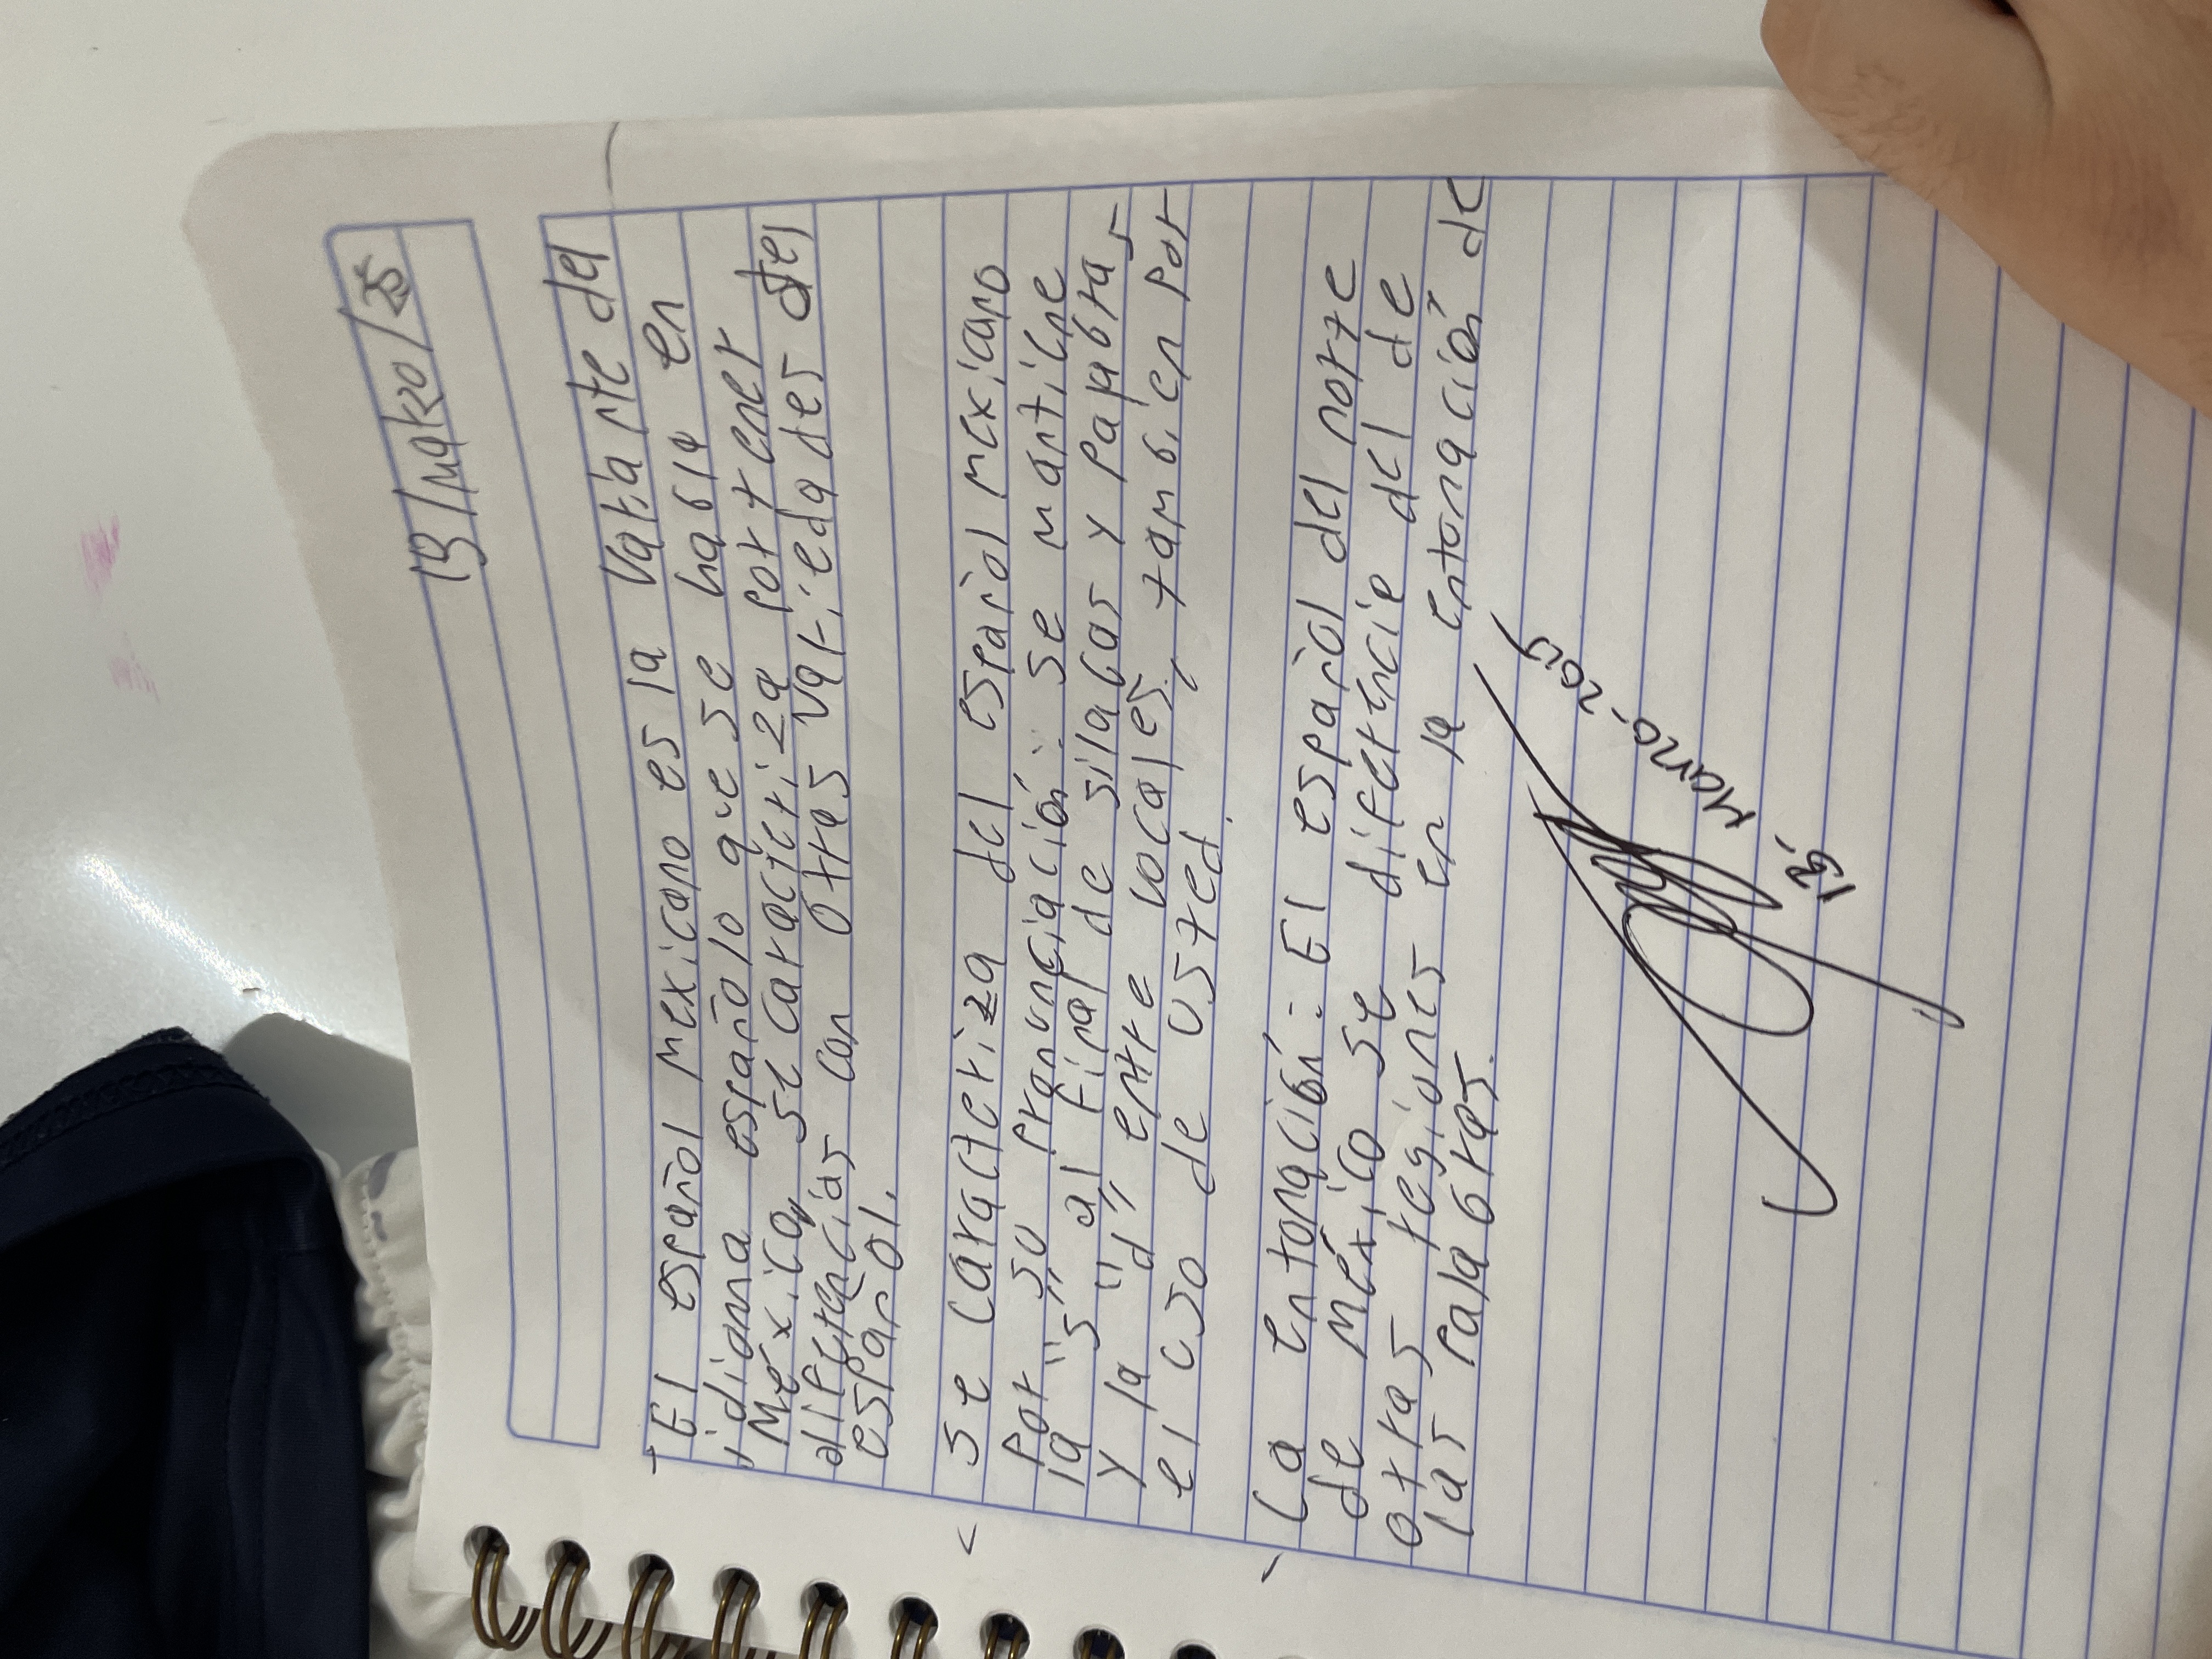 13/Marzo/25
- El español mexicano es la Variante del
idioma español que se habla en
México, se caracteriza por tener
diferencias con otras variedades del
español.
Se caracteriza del español mexicano
Por su pronunciación: se mantiene
la "s" al final de silabas y palabras
y la "d" entre vocales, también por
el uso de usted.
La entonación: El español del norte
de México se diferencie del de
otras regiones en la entonación de
las palabras.
13. Marzo-2025